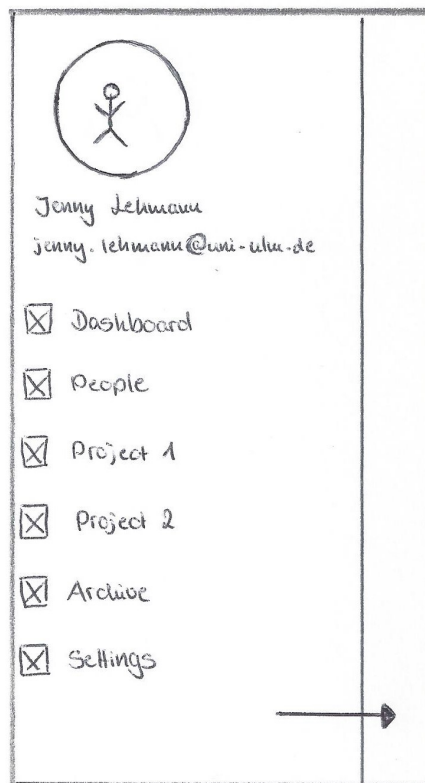 Jenny Lehmann
jenny.lehmann@uni-ulm.de
Dashboard
People
Project 1
Project 2
Archive
Settings